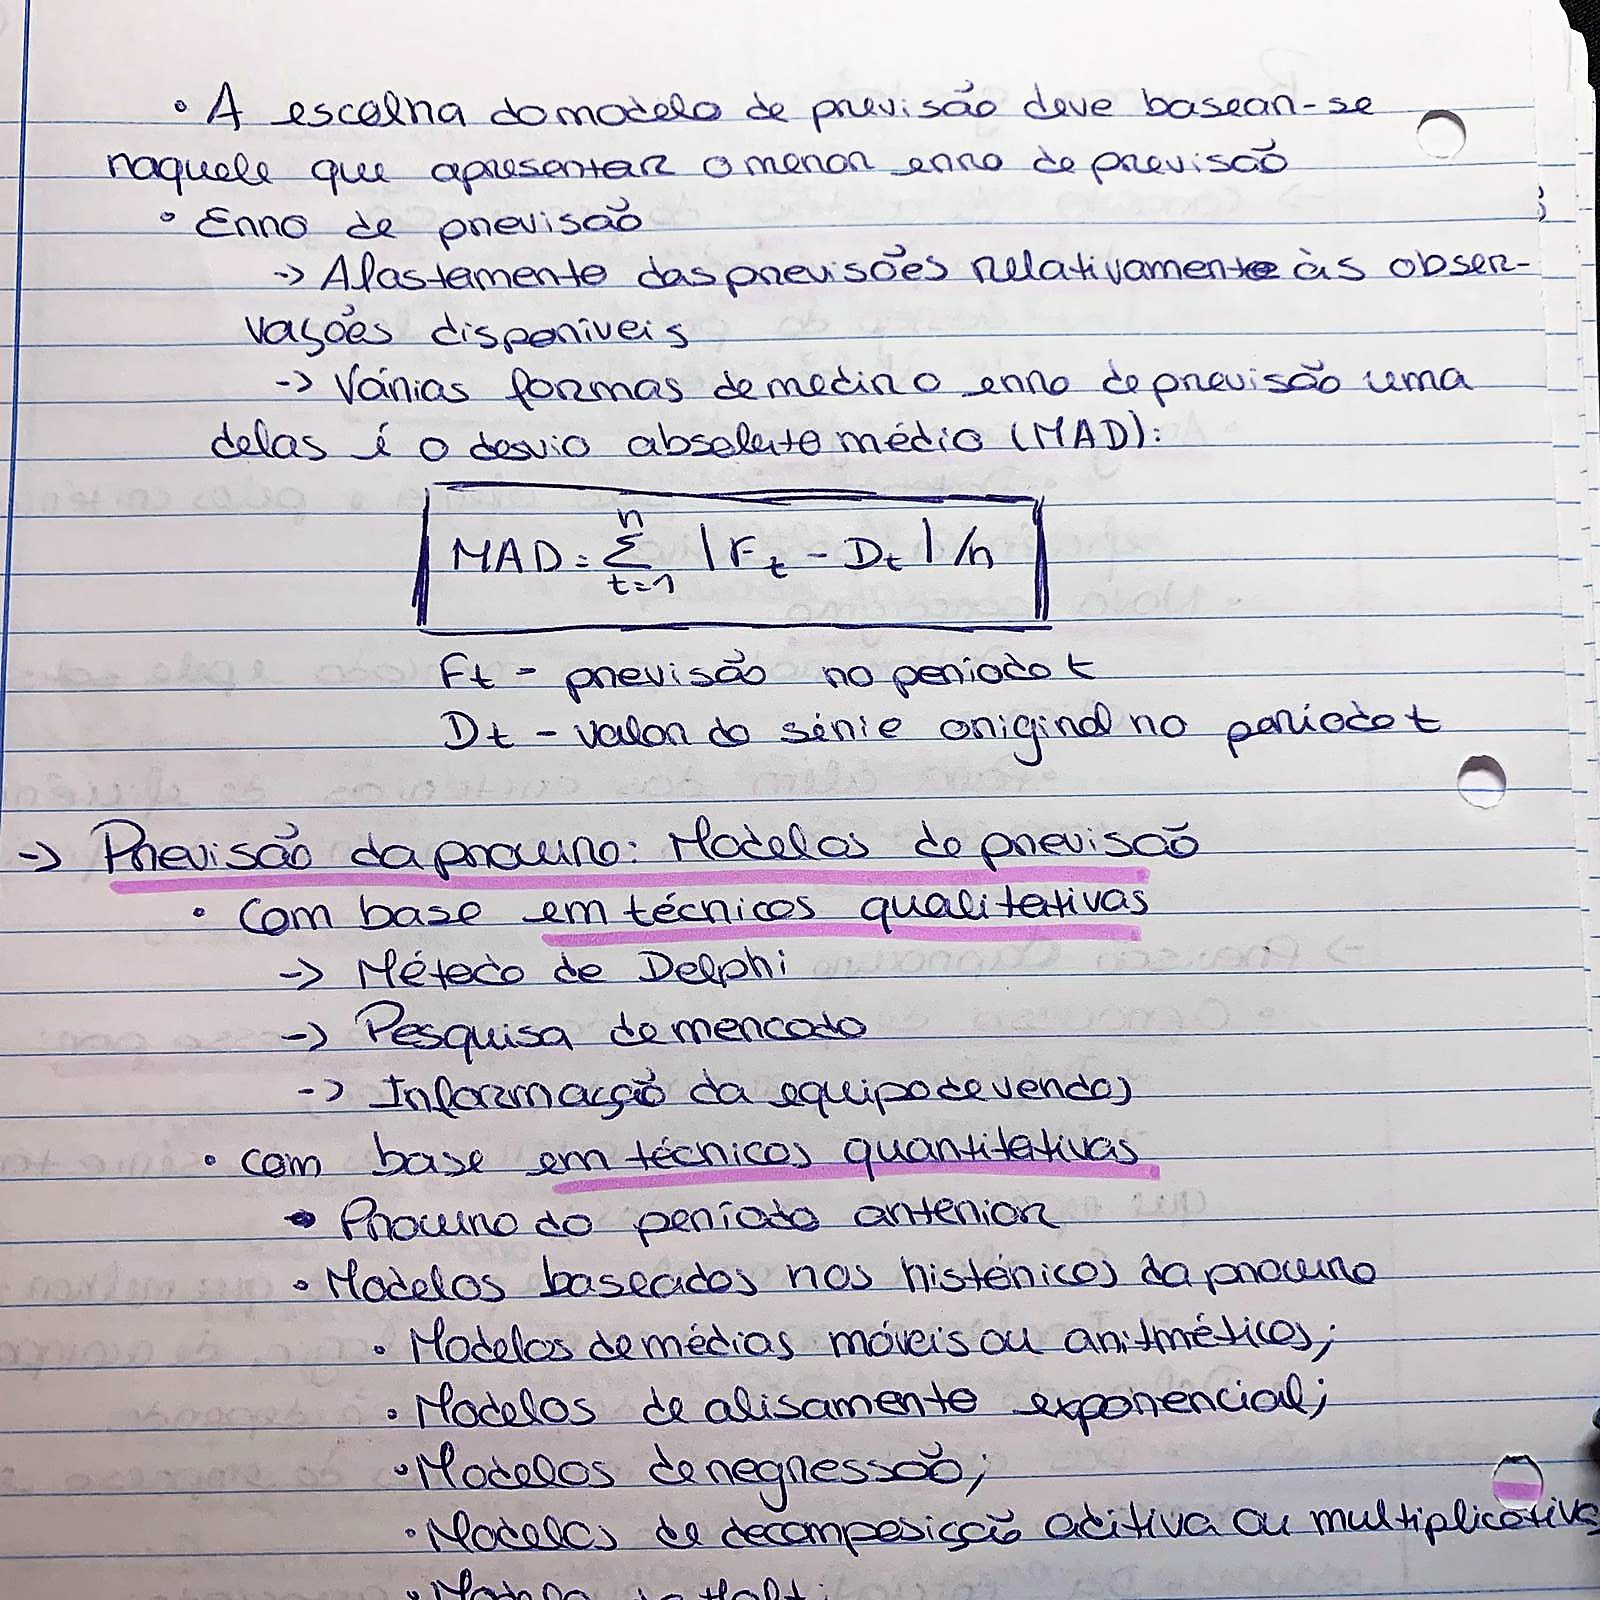 • A escolha do modelo de previsão deve basear-se
naquele que apresentar o menor erro de previsão
• Erro de previsão
-> Afastamento das previsões relativamente às obser-
vações disponíveis
-> Várias formas de medir o erro de previsão uma
delas é o desvio absoluto médio (MAD):
MAD = Σ_{t=1}^{n} |Ft - Dt| /n
Ft - previsão no período t
Dt - valor da série original no período t
-> Previsão da procura: Modelos de previsão
• Com base em técnicas qualitativas
-> Método de Delphi
-> Pesquisa de mercado
-> Informação da equipa de vendas
• Com base em técnicas quantitativas
• Procura do período anterior
• Modelos baseados nos históricos da procura
• Modelos de médias móveis ou aritméticas;
• Modelos de alisamento exponencial;
• Modelos de regressão;
• Modelos de decomposição aditiva ou multiplicativa